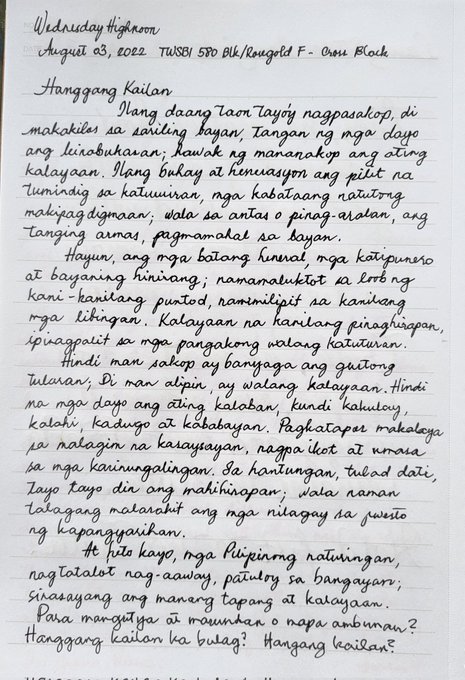 Wednesday Highnoon
August 03, 2022 TWSBI 580 Blk/Rosegold F - Cross Black
Hanggang Kailan
Ilang daang taon tayo'y nagpasakop, di
makakilos sa sariling bayan, tangan ng mga dayo
ang kinabukasan; hawak ng mananakop ang ating
kalayaan. Ilang buhay at henerasyon ang pilit na
tumindig sa katuwiran, mga kabataang natutong
makipagdigmaan; wala sa antas o pinag-aralan, ang
tanging armas, pagmamahal sa bayan.
Hayun, ang mga batang heneral, mga katipunero
at bayaning hinirang; namamaluktot sa loob ng
kani-kanilang puntod, namimilipit sa kanilang
mga libingan. Kalayaan na kanilang pinaghirapan,
ipinagpalit sa mga pangakong walang katuturan.
Hindi man sakop ay banyaga ang gustong
tularan; Di man alipin, ay walang kalayaan. Hindi
na mga dayo ang ating kalaban, kundi kakulay,
kalahi, kadugo at kababayan. Pagkatapos makalaya
sa malagim na kasaysayan, nagpaikot at umasa
sa mga kasinungalingan. Sa hantungan, tulad dati,
tayo tayo din ang mahihirapan; wala naman
talagang malasakit ang mga nilagay sa pwesto
ng kapangyarihan.
At heto kayo, mga Pilipinong naturingan,
nagtatalot nag-aaway, patuloy sa bangayan;
sinasayang ang manang tapang at kalayaan.
Para mangutya at masunhan o mapa ambunan?
Hanggang kailan ka bulag? Hangang kailan?